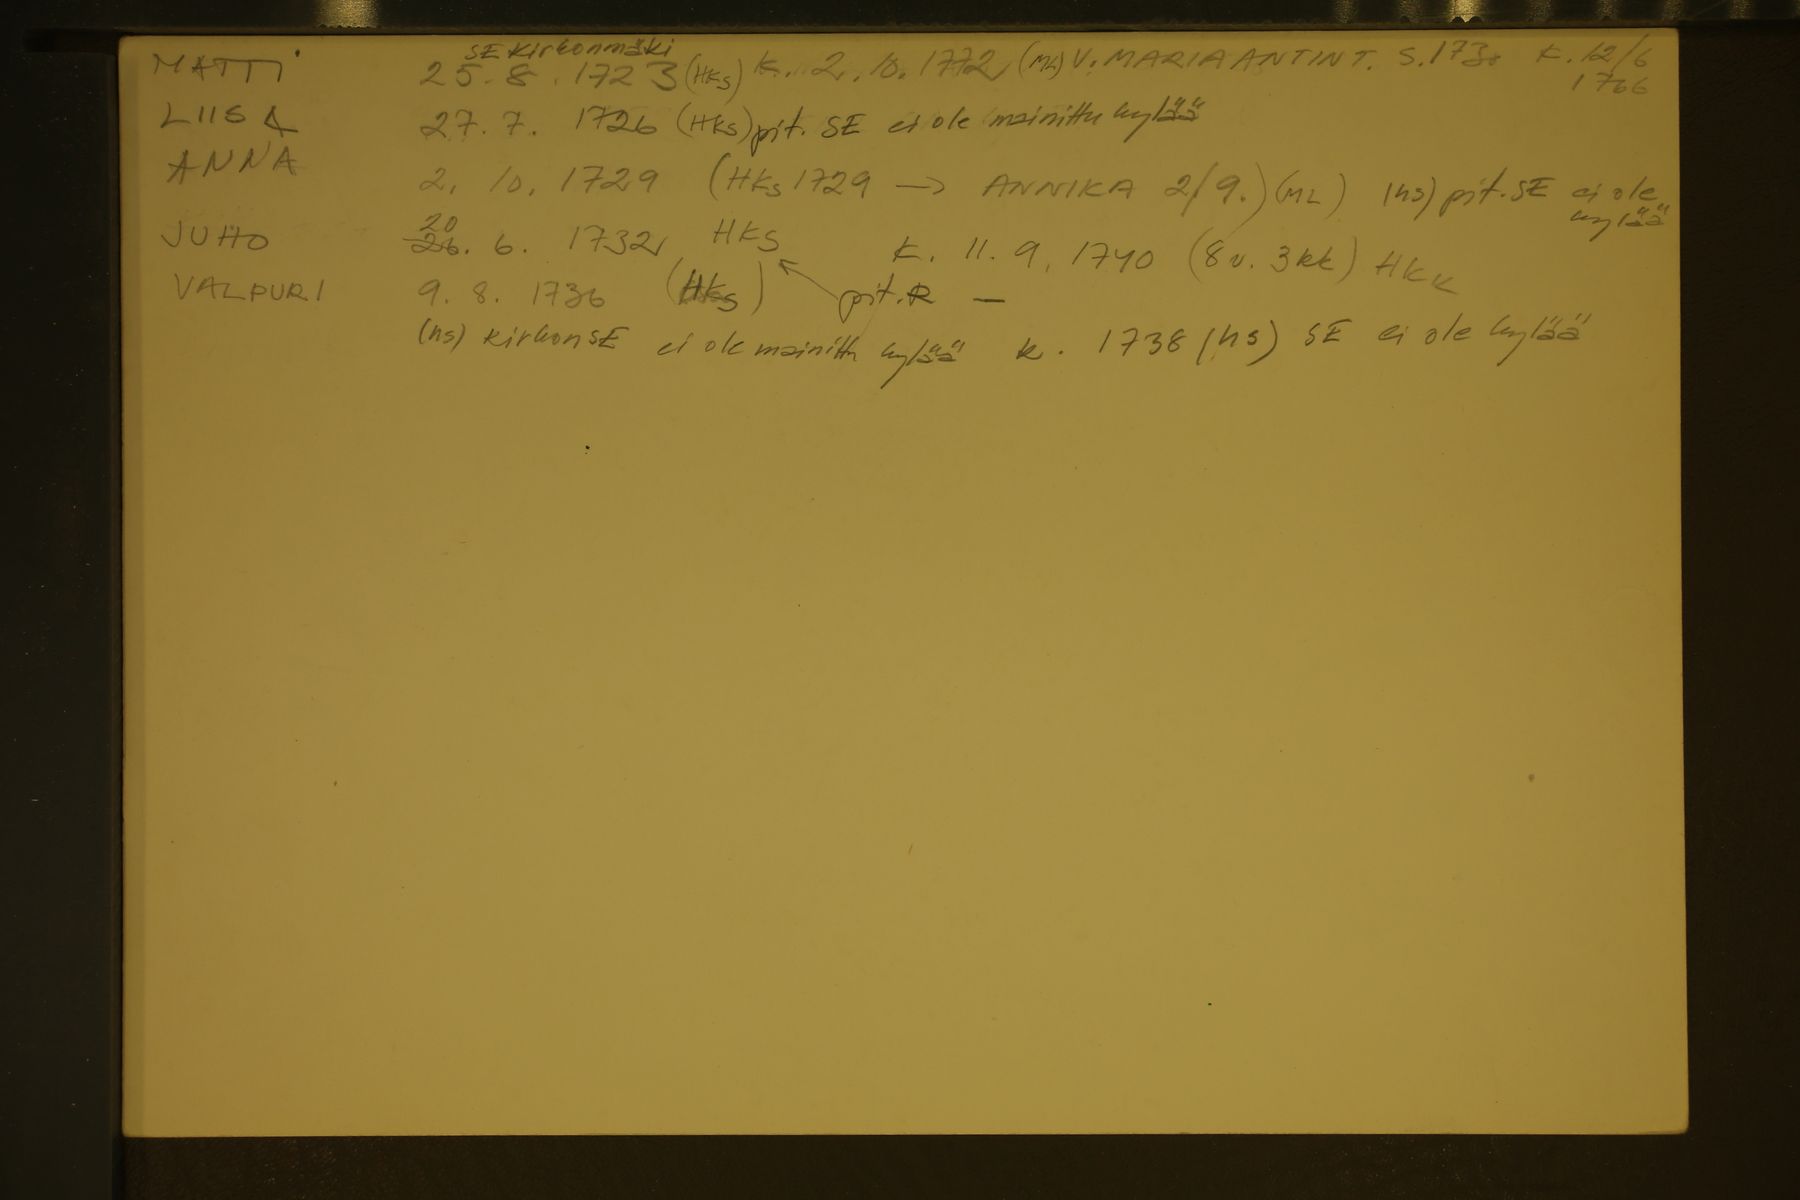 SE Kirkonmäki
MATTI 25.8.1723 (HKS) K. 2.10.1772 (ML) V. MARIA ANTINT. S.1730 K. 12/6
1766
LIISA 27.7. 1726 (HKS) pit. SE ei ole mainittu kylää
ANNA 2. 10. 1729 (HKS 1729 → ANNIKA 2/9.) (ML) (hs) pit. SE ei ole
kylää
20
JUHO 26. 6. 1732 HKS K. 11. 9. 1740 (8 v. 3 kk) HKK
VALPURI 9. 8. 1736 (HKS) pit. R —
(hs) kirkon SE ei ole mainittu kylää k. 1738 (hs) SE ei ole kylää